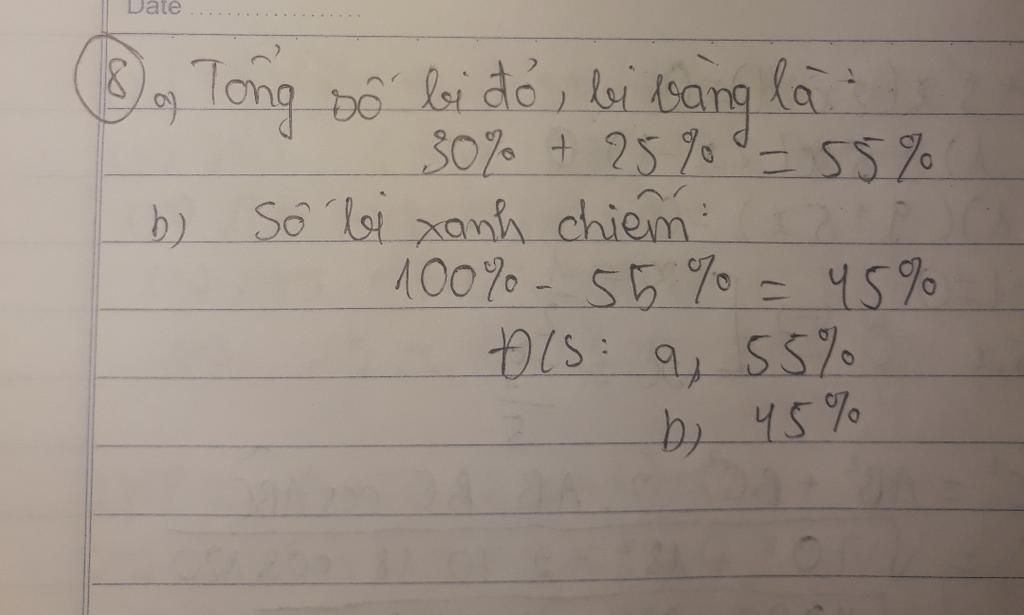 Date ....................
⑧ a) Tổng số bi đỏ, bi vàng là:
30% + 25% = 55%
b) Số bi xanh chiếm:
100% - 55% = 45%
Đ/S: a, 55%
b, 45%